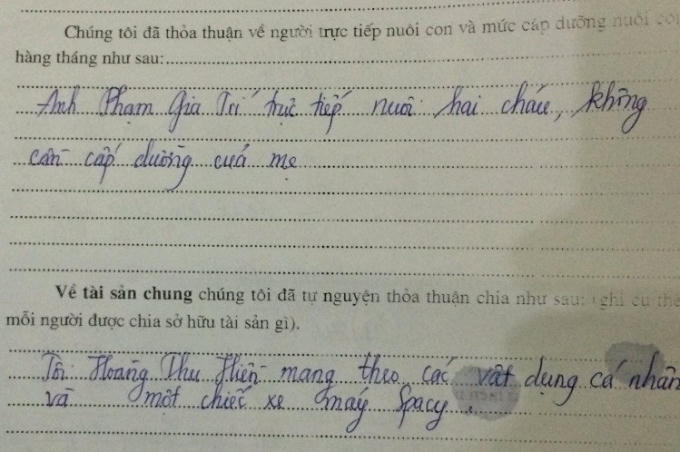 Chúng tôi đã thỏa thuận về người trực tiếp nuôi con và mức cấp dưỡng nuôi con
hàng tháng như sau:
Anh Phạm Gia Trí trực tiếp nuôi hai cháu, không
cần cấp dưỡng cuả mẹ
Về tài sản chung chúng tôi đã tự nguyện thỏa thuận chia như sau: (ghi cụ thể
mỗi người được chia sở hữu tài sản gì).
Tôi Hoàng Thu Hiền mang theo các vật dụng cá nhân
và một chiếc xe máy Spacy.